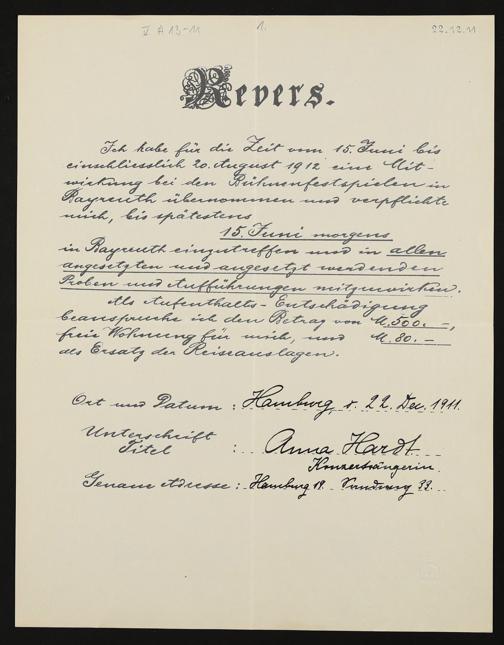 V A 13-11
1.
22.12.11
Revers.
Ich habe für die Zeit vom 15. Juni bis
einschliesslich 20. August 1912 eine Mit-
wirkung bei den Bühnenfestspielen in
Bayreuth übernommen und verpflichte
mich, bis spätestens
15. Juni morgens
in Bayreuth einzutreffen und in allen
angesetzten und angesetzt werdenden
Proben und Aufführungen mitzuwirken.
Als Aufenthalts-Entschädigung
beanspruche ich den Betrag von M. 500.-,
freie Wohnung für mich, und M. 80.-
als Ersatz der Reiseauslagen.
Ort und Datum : Hamburg, d. 22. Dec. 1911.
Unterschrift
Titel : Anna Hardt
Konzertsängerin.
Genaue Adresse : Hamburg 19. 33.